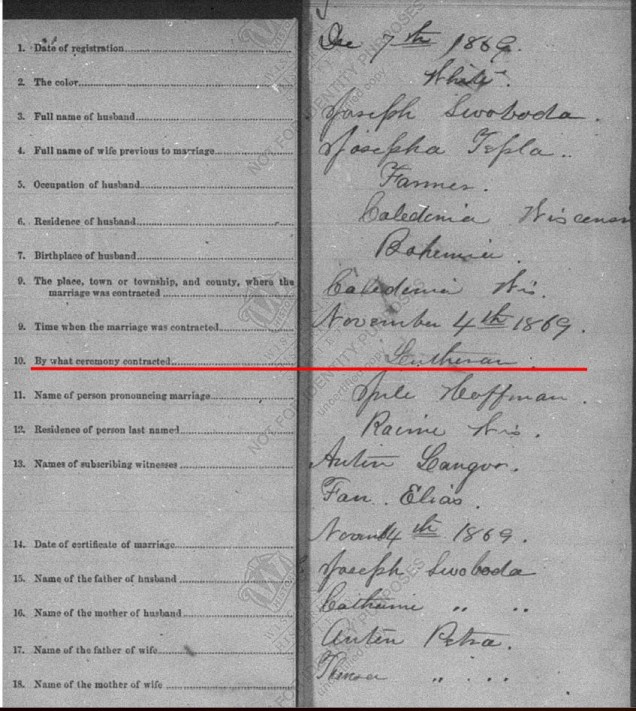 1. Date of registration Dec 7th 1869.
2. The color White.
3. Full name of husband Joseph Swoboda.
4. Full name of wife previous to marriage Josepha Tepla.
5. Occupation of husband Farmer.
6. Residence of husband Caledonia Wisconsin
7. Birthplace of husband Bohemia.
9. The place, town or township, and county, where the
marriage was contracted Caledonia Wis.
9. Time when the marriage was contracted November 4th 1869.
10. By what ceremony contracted Lutheran.
11. Name of person pronouncing marriage Hoffman.
12. Residence of person last named Racine Wis.
13. Names of subscribing witnesses Anton
Elias.
14. Date of certificate of marriage 4th 1869.
15. Name of the father of husband Joseph Swoboda
16. Name of the mother of husband Catherine " "
17. Name of the father of wife Anton
18. Name of the mother of wife " "
NOT FOR IDENTITY PURPOSES
uncertified copy